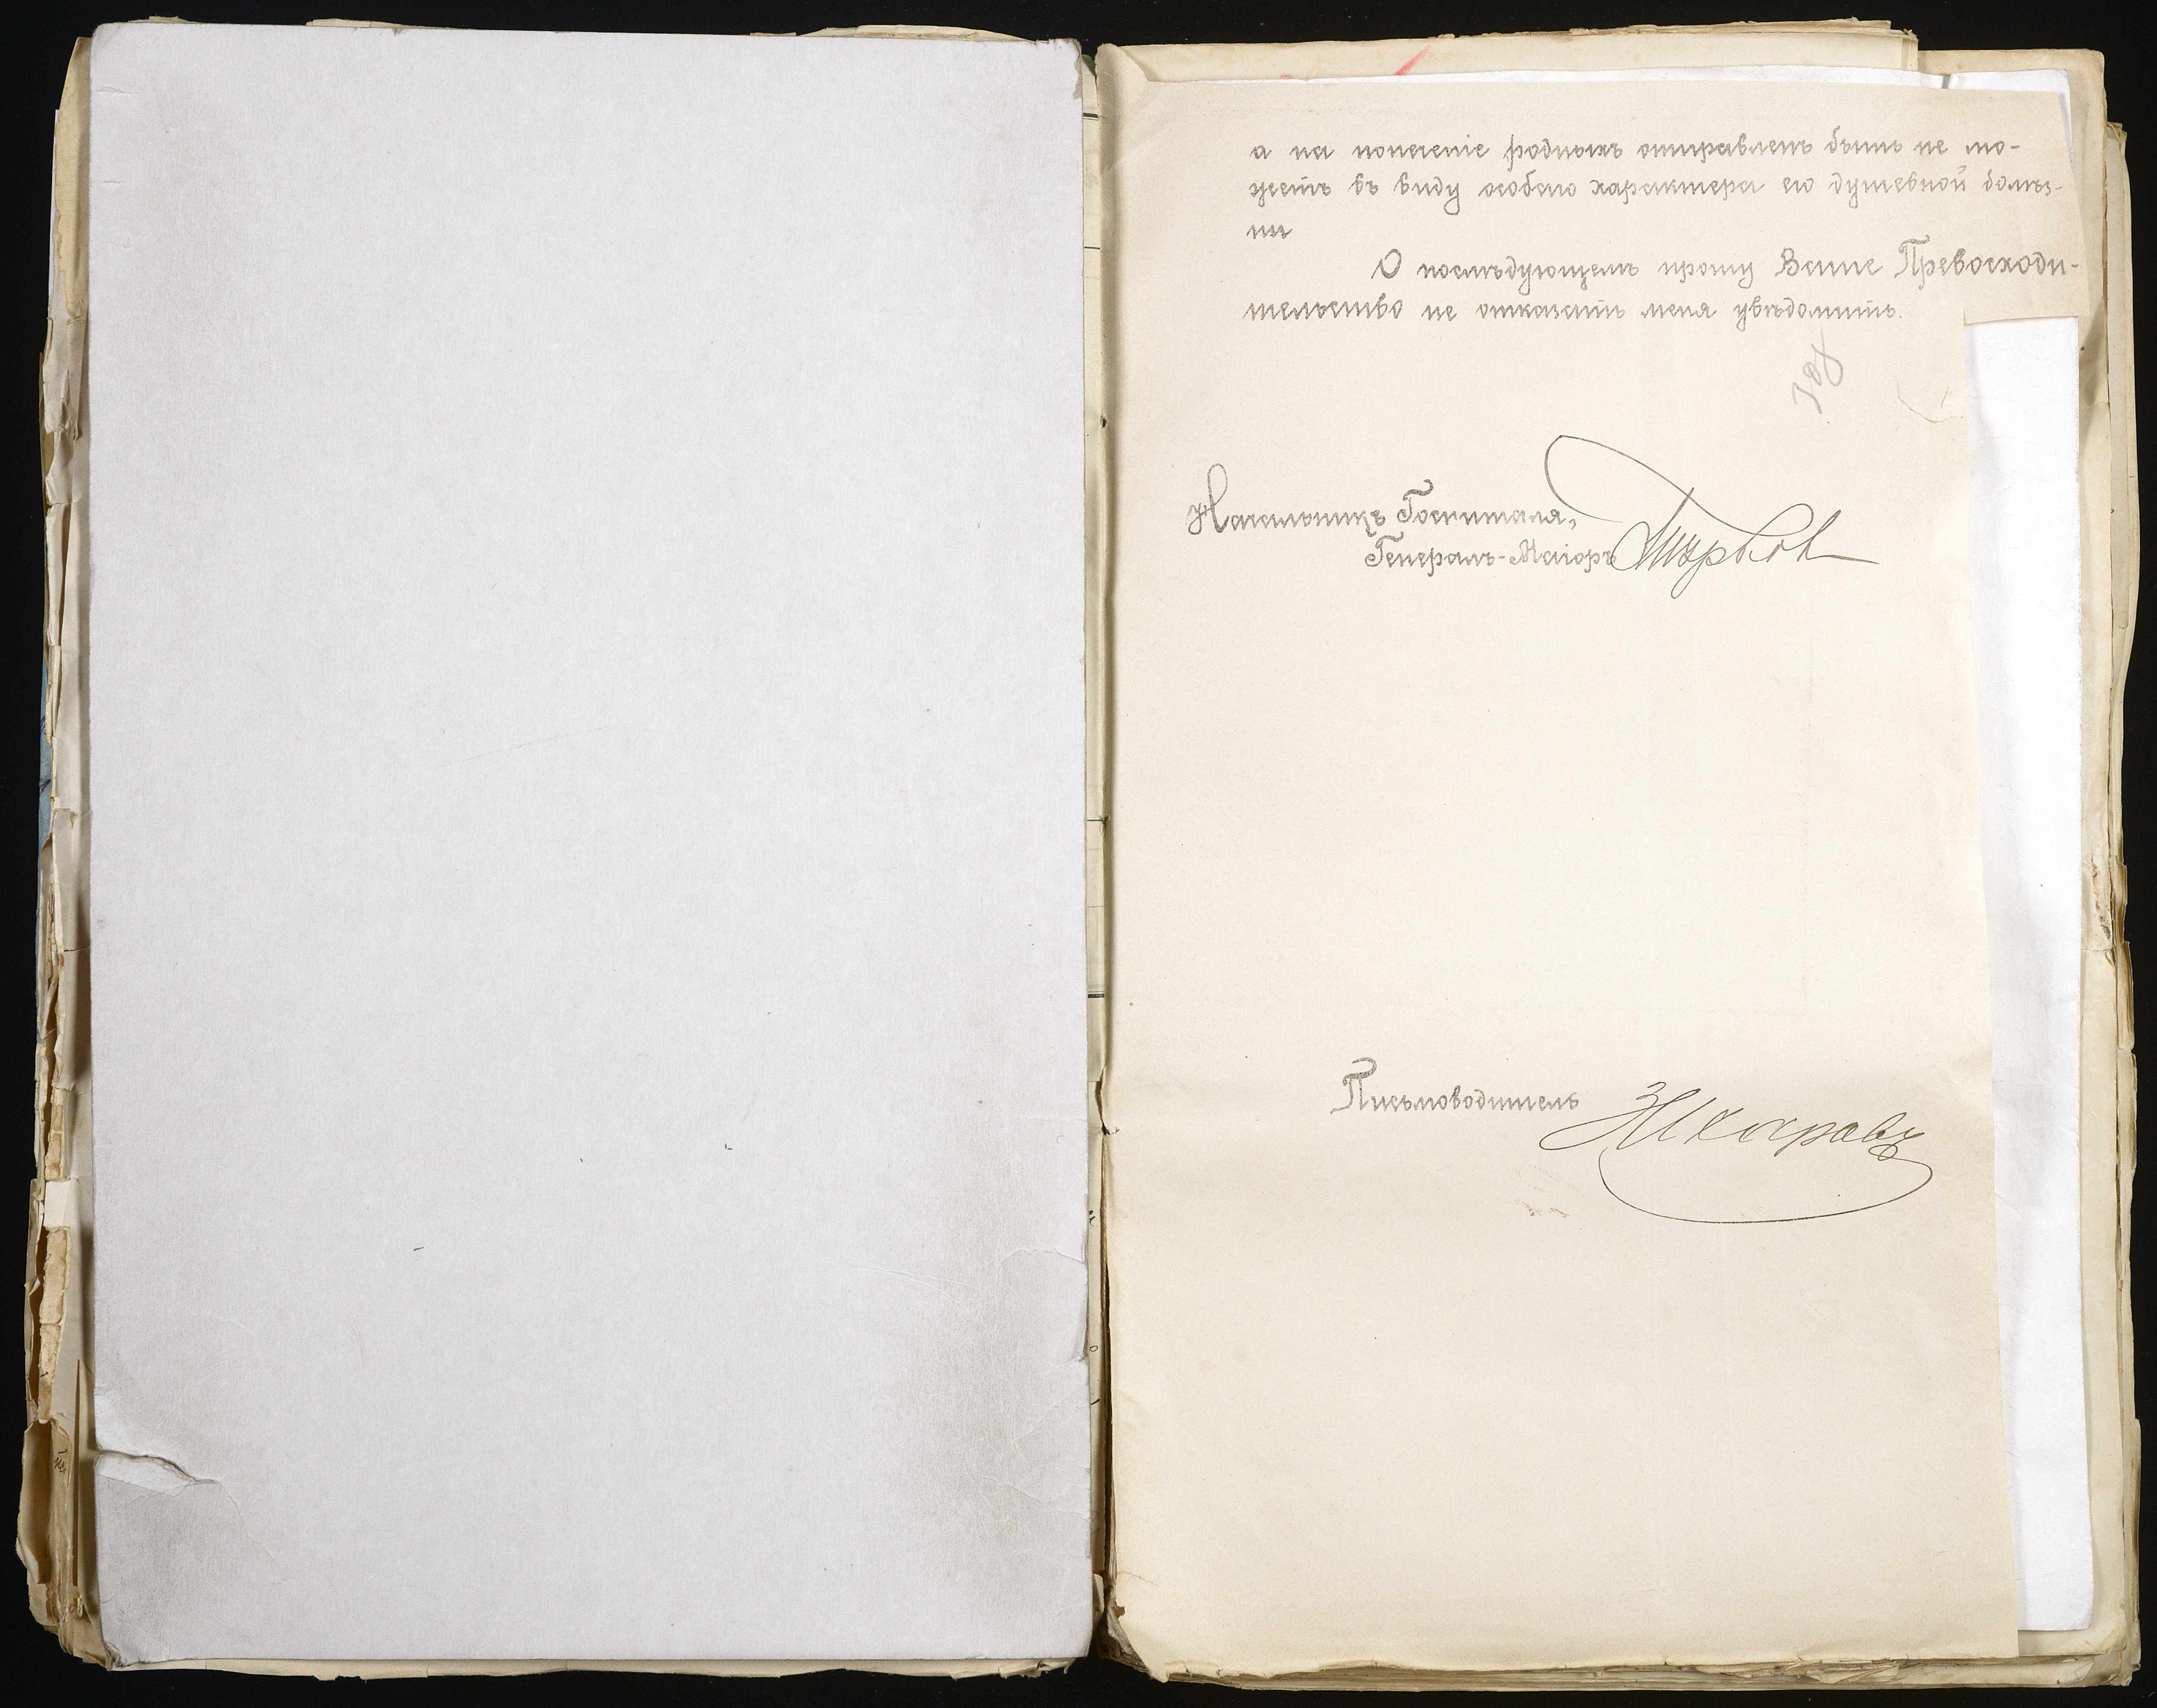 а на попеченіе родныхъ отправленъ быть не мо-
жетъ въ виду особено характера его душевной болѣз-
ни
О послѣдующемъ прошу Ваше Превосходи-
тельство не отказать меня увѣдомить.
Начальникъ Госпиталя,
Генералъ-Маіоръ
Письмоводитель